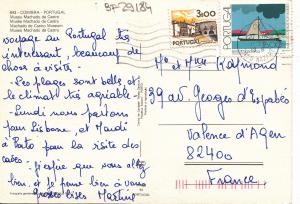 BF 29184
843 - COIMBRA - PORTUGAL
Museu Machado de Castro
Musée Machado de Castro
Machado de Castro Museum
Museo Machado de Castro
3$00
PORTUGAL
PORTUGAL
voyage au Portugal très
intéressant, beaucoup de
choses à visiter -
- Les plages sont belles et
le climat très agréable
- Lundi nous partons
pour Lisbonne, et Mardi
à Porto pour la visite des
caves - J'espère que vous allez
bien, et je pense bien à vous
grosses bises Martine
Mr et Mme Raymond
39 av Georges d'Esparbès
Valence d'Agen
82400
France